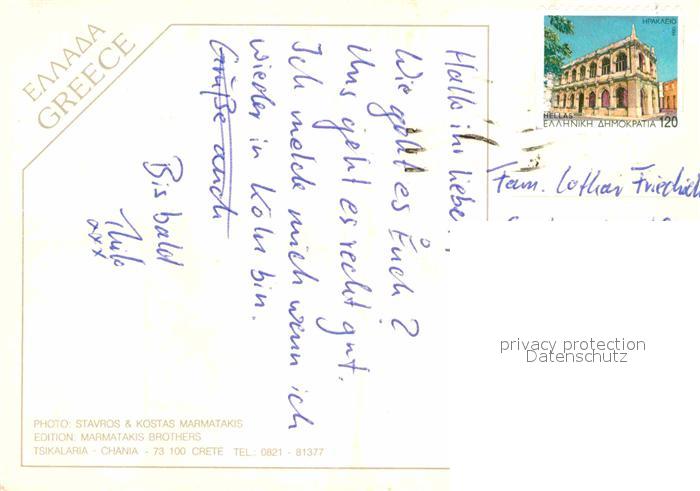 ΕΛΛΑΔΑ
GREECE
Hallo ihr liebe..
Wie geht es Euch?
Uns geht es recht gut.
Ich melde mich wenn ich
wieder in Köln bin.
Grüße auch
Bis bald
xxx
ΗΡΑΚΛΕΙΟ
HELLAS
ΕΛΛΗΝΙΚΗ ΔΗΜΟΚΡΑΤΙΑ 120
Fam. Lothar Friedrich
privacy protection
Datenschutz
PHOTO: STAVROS & KOSTAS MARMATAKIS
EDITION: MARMATAKIS BROTHERS
TSIKALARIA - CHANIA - 73 100 CRETE TEL.: 0821 - 81377